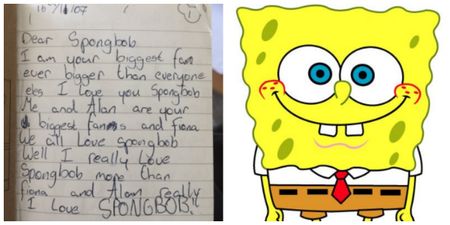 Dear Spongbob
I am your biggest fan
ever bigger than everyone
els I Love you Spongbob
Me and Alan are your
biggest fans and fiona
We all Love spongbob
Well I really Love
Spongbob more than
fiona and Alan really
I Love SPONGBOB!